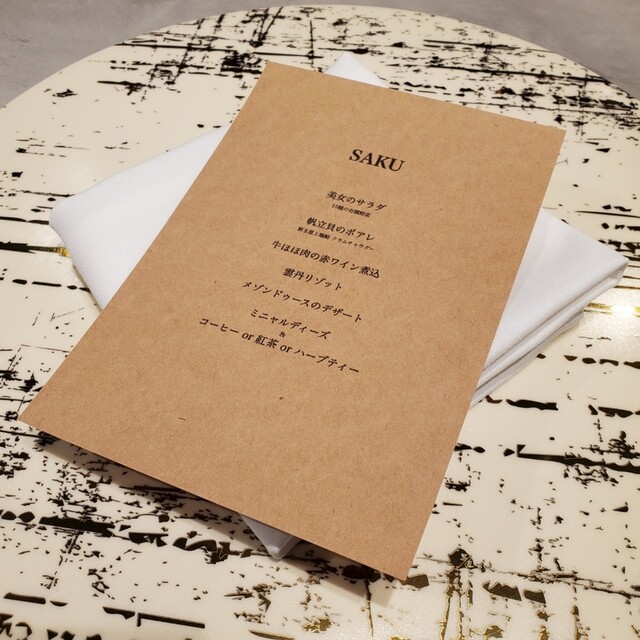 SAKU
美女のサラダ
15種の有機野菜
帆立貝のポアレ
牛ほほ肉の赤ワイン煮込
雲丹リゾット
メゾンドゥースのデザート
ミニャルディーズ
&
コーヒー or 紅茶 or ハーブティー